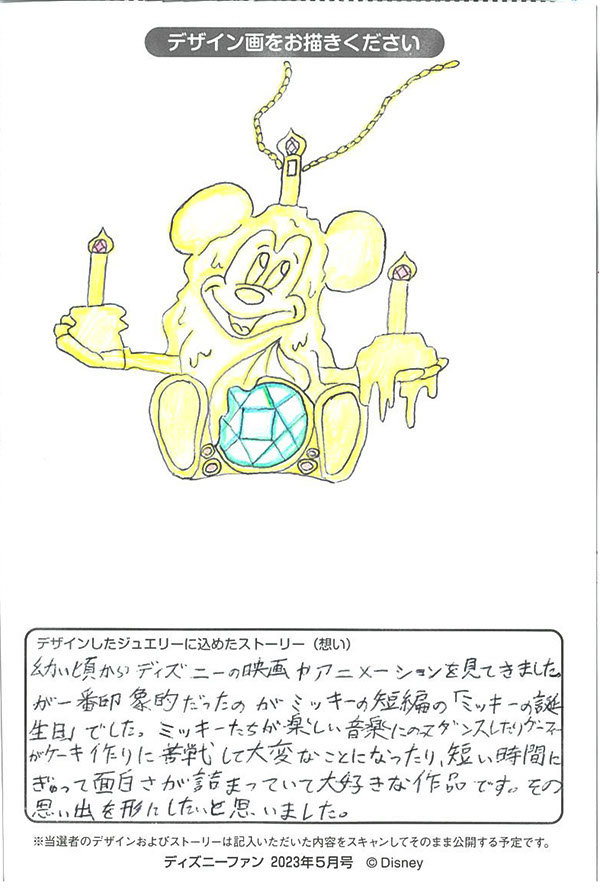 デザイン画をお描きください
デザインしたジュエリーに込めたストーリー（想い）
幼い頃からディズニーの映画やアニメーションを見てきました。
が一番印象的だったのがミッキーの短編の「ミッキーの誕
生日」でした。ミッキーたちが楽しい音楽にのってダンスしたりグーフィー
がケーキ作りに苦戦して大変なことになったり、短い時間に
ぎゅって面白さが詰まっていて大好きな作品です。その
思い出を形にしたいと思いました。
※当選者のデザインおよびストーリーは記入いただいた内容をスキャンしてそのまま公開する予定です。
ディズニーファン 2023年5月号 ©Disney